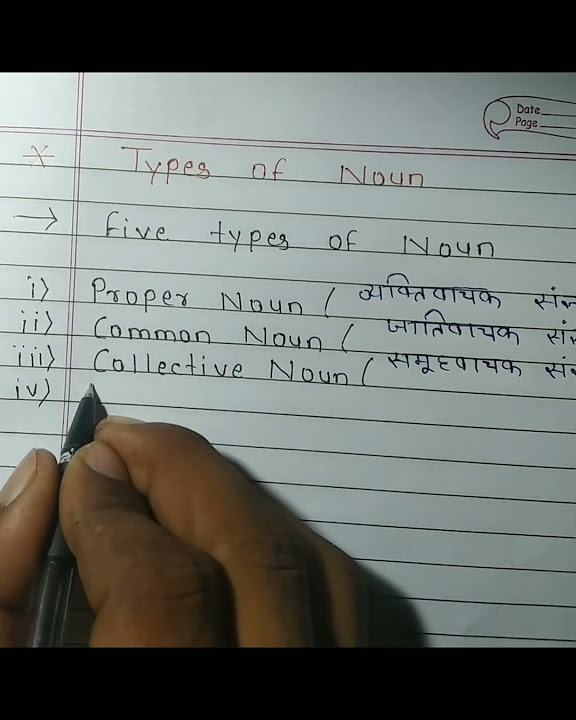 Date
Page
* Types of Noun
→ five types of Noun
i) Proper Noun ( व्यक्तिवाचक सं
ii) Common Noun ( जातिवाचक सं
iii) Collective Noun ( समूहवाचक सं
iv)